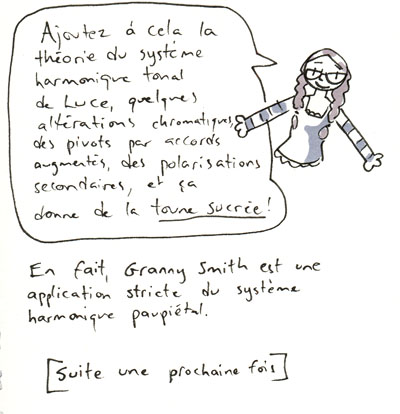 Ajoutez à cela la
théorie du système
harmonique tonal
de Luce, quelques
altérations chromatiques,
des pivots par accords
augmentés, des polarisations
secondaires, et ça
donne de la toune sucrée!
En fait, Granny Smith est une
application stricte du système
harmonique paupiétal.
[Suite une prochaine fois]